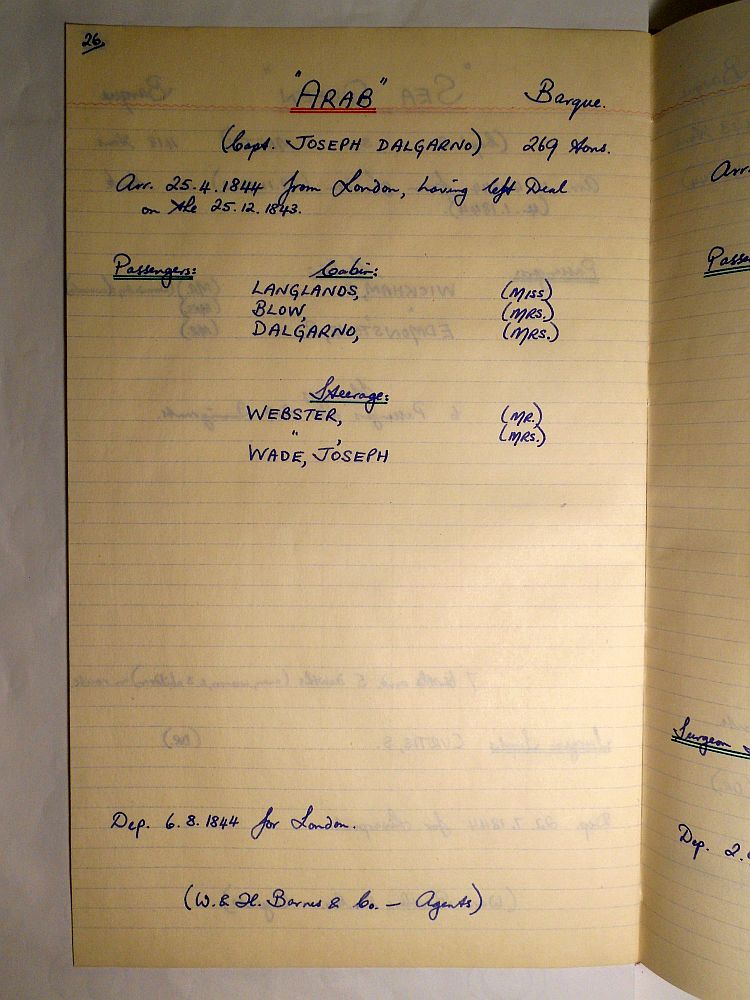 26.
"ARAB" Barque.
(Capt. JOSEPH DALGARNO) 269 tons.
Arr. 25.4.1844 from London, having left Deal
on the 25.12.1843.
Passengers: Cabin:
LANGLANDS, (MISS)
BLOW, (MRS.)
DALGARNO, (MRS.)
Steerage:
WEBSTER, (MR.)
" , (MRS.)
WADE, JOSEPH
Dep. 6.8.1844 for London.
(W. & H. Barnes & Co. — Agents)
Arr.
Surgeon
Dep. 2.